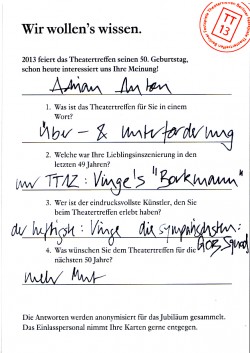 Wir wollen's wissen.
TT
13
2013 feiert das Theatertreffen seinen 50. Geburtstag,
schon heute interessiert uns Ihre Meinung!
Adrian Anton
1. Was ist das Theatertreffen für Sie in einem
Wort?
Über- & Unterforderung
2. Welche war Ihre Lieblingsinszenierung in den
letzten 49 Jahren?
nur TT12: Vinge's "Borkmann"
3. Wer ist der eindrucksvollste Künstler, den Sie
beim Theatertreffen erlebt haben?
der heftigste: Vinge die sympathischsten:
Gob Squad
4. Was wünschen Sie dem Theatertreffen für die
nächsten 50 Jahre?
mehr Mut
Die Antworten werden anonymisiert für das Jubiläum gesammelt.
Das Einlasspersonal nimmt Ihre Karten gerne entgegen.